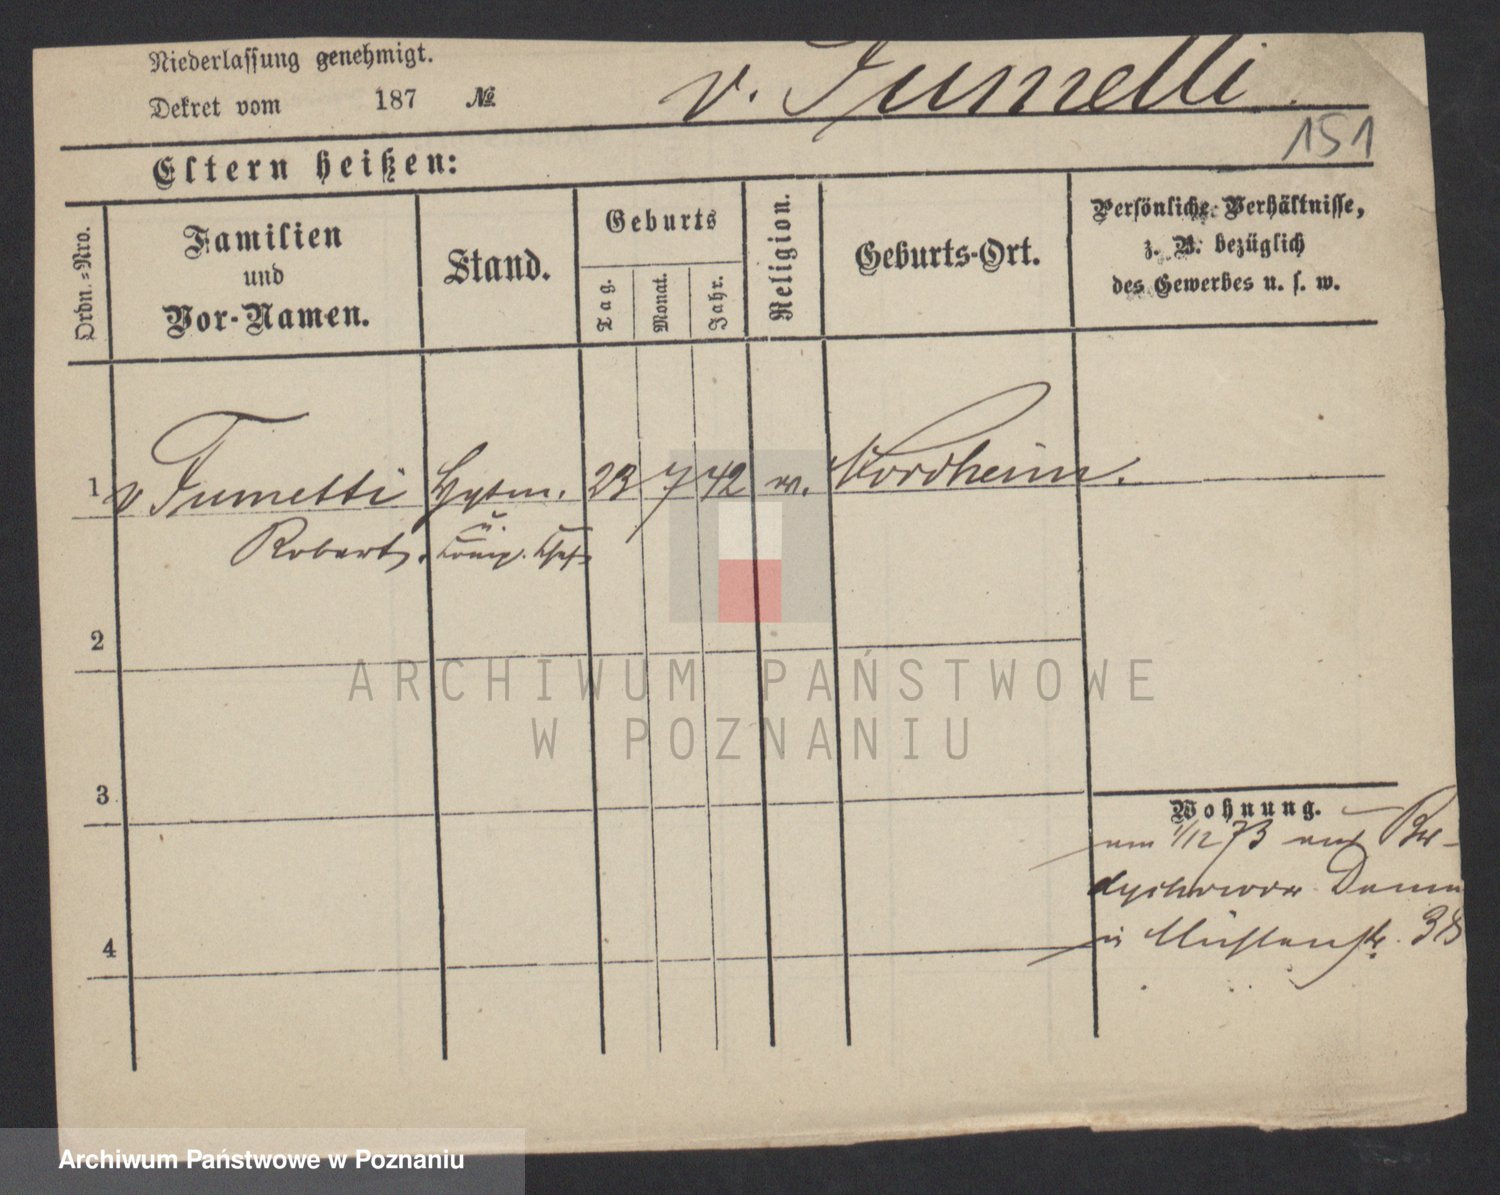 Niederlassung genehmigt.
Dekret vom 187 №
v. Fumetti.
151
Eltern heißen:
Ordn.-Nro.
Familien
und
Vor-Namen.
Stand.
Geburts
Tag.
Monat.
Jahr.
Religion.
Geburts-Ort.
Persönliche Verhältnisse,
z. B. bezüglich
des Gewerbes u. s. w.
1 v Fumetti Hptm. 23 7 42 Nordheim.
Robert. u. Comp. Chef
2
3
4
Wohnung.
am 1/12 73
Damm
in Mühlenstr. 38
ARCHIWUM PAŃSTWOWE
W POZNANIU
Archiwum Państwowe w Poznaniu